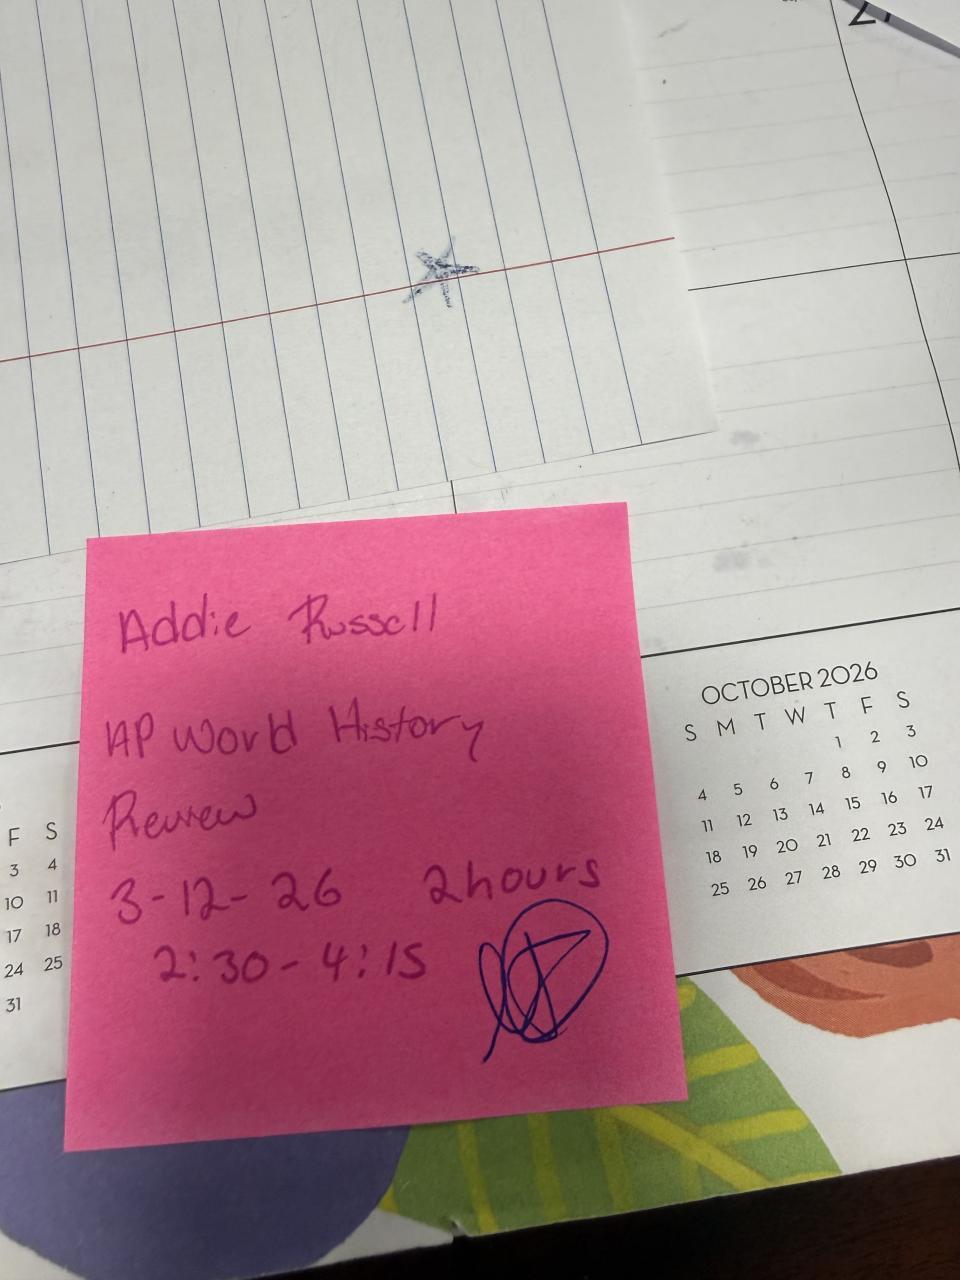 Addie Russell
AP World History
Review
3-12-26 2hours
2:30-4:15
OCTOBER 2026
S M T W T F S
1 2 3
4 5 6 7 8 9 10
11 12 13 14 15 16 17
18 19 20 21 22 23 24
25 26 27 28 29 30 31
F S
3 4
10 11
17 18
24 25
31